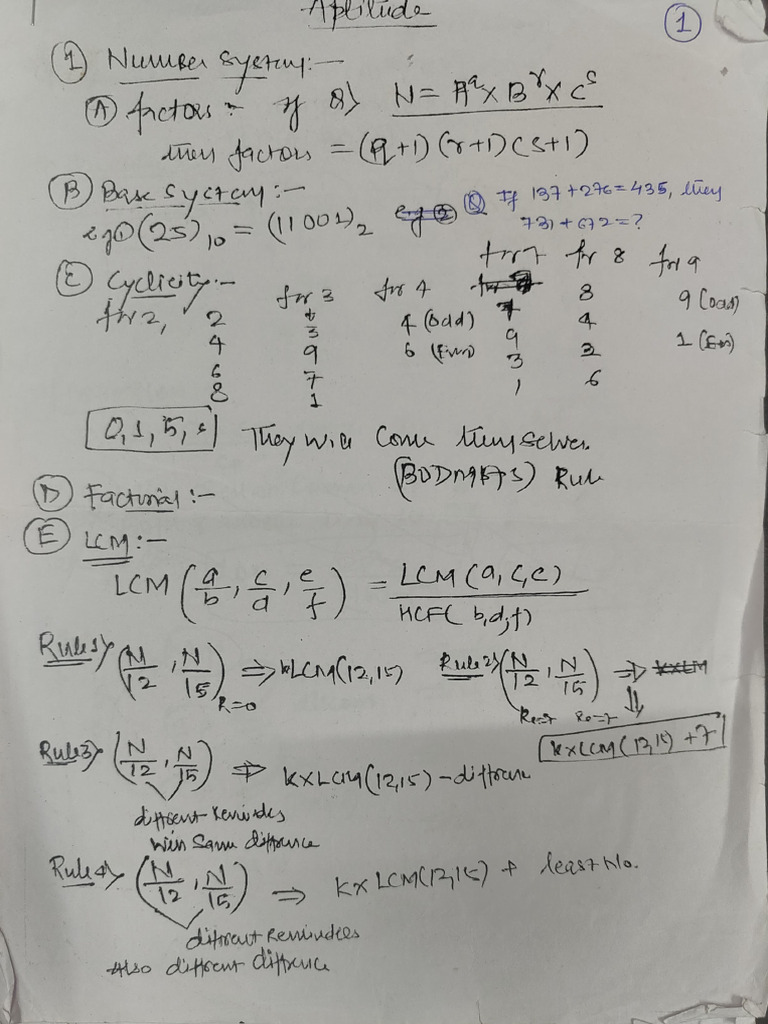 Aptitude
1
① Number System:—
Ⓐ factors:- if N = A^q × B^r × C^s
then factors = (q+1) (r+1) (s+1)
Ⓑ Base System:—
eg① (25)₁₀ = (11001)₂
Q If 137+276=435, then
731+672=?
Ⓒ Cyclicity:—
for 2, for 3 for 4 for 7 for 8 for 9
2 3 4 (Odd) 7 8 9 (Odd)
4 9 6 (Even) 9 4 1 (Even)
6 7 3 2
8 1 1 6
0, 1, 5, 6 They will come themselves.
(BODMAS) Rule
Ⓓ Factorial:—
Ⓔ LCM:—
LCM (a/b, c/d, e/f) = LCM (a, c, e) / HCF( b,d,f)
Rule1) (N/12, N/15) R=0 ⇒ kLCM(12,15)
Rule2) (N/12, N/15) ⇒
Re=7 Re=7
k×LCM(12,15) +7
Rule3) (N/12, N/15) ⇒ k×LCM(12,15) – diffrence
different Reminders
with Same diffrence
Rule4) (N/12, N/15) ⇒ k× LCM(12,15) + least No.
diffrent Reminders
Also different diffrence